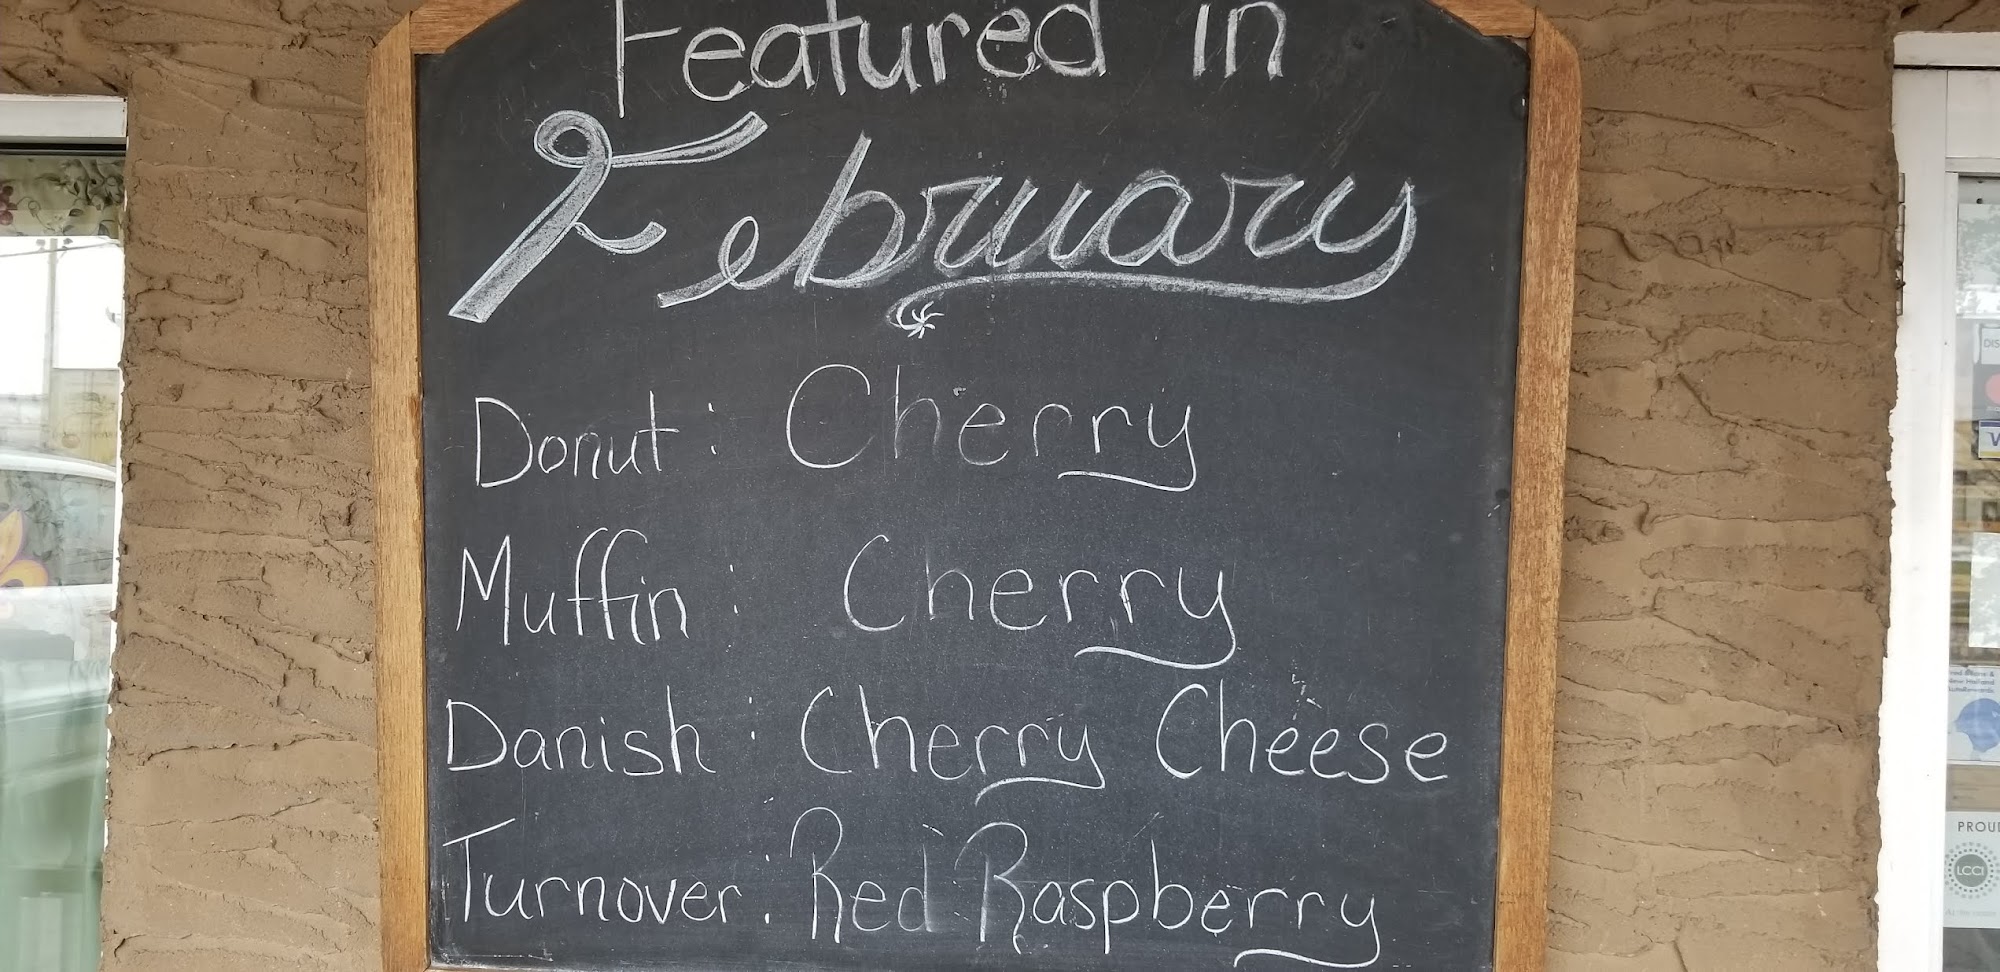 Featured in
February
Donut: Cherry
Muffin: Cherry
Danish: Cherry Cheese
Turnover: Red Raspberry
DIS
V
PROUD
LCCI